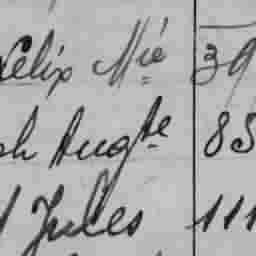 Félix Mie 39
ph Augte 85
Jules 111